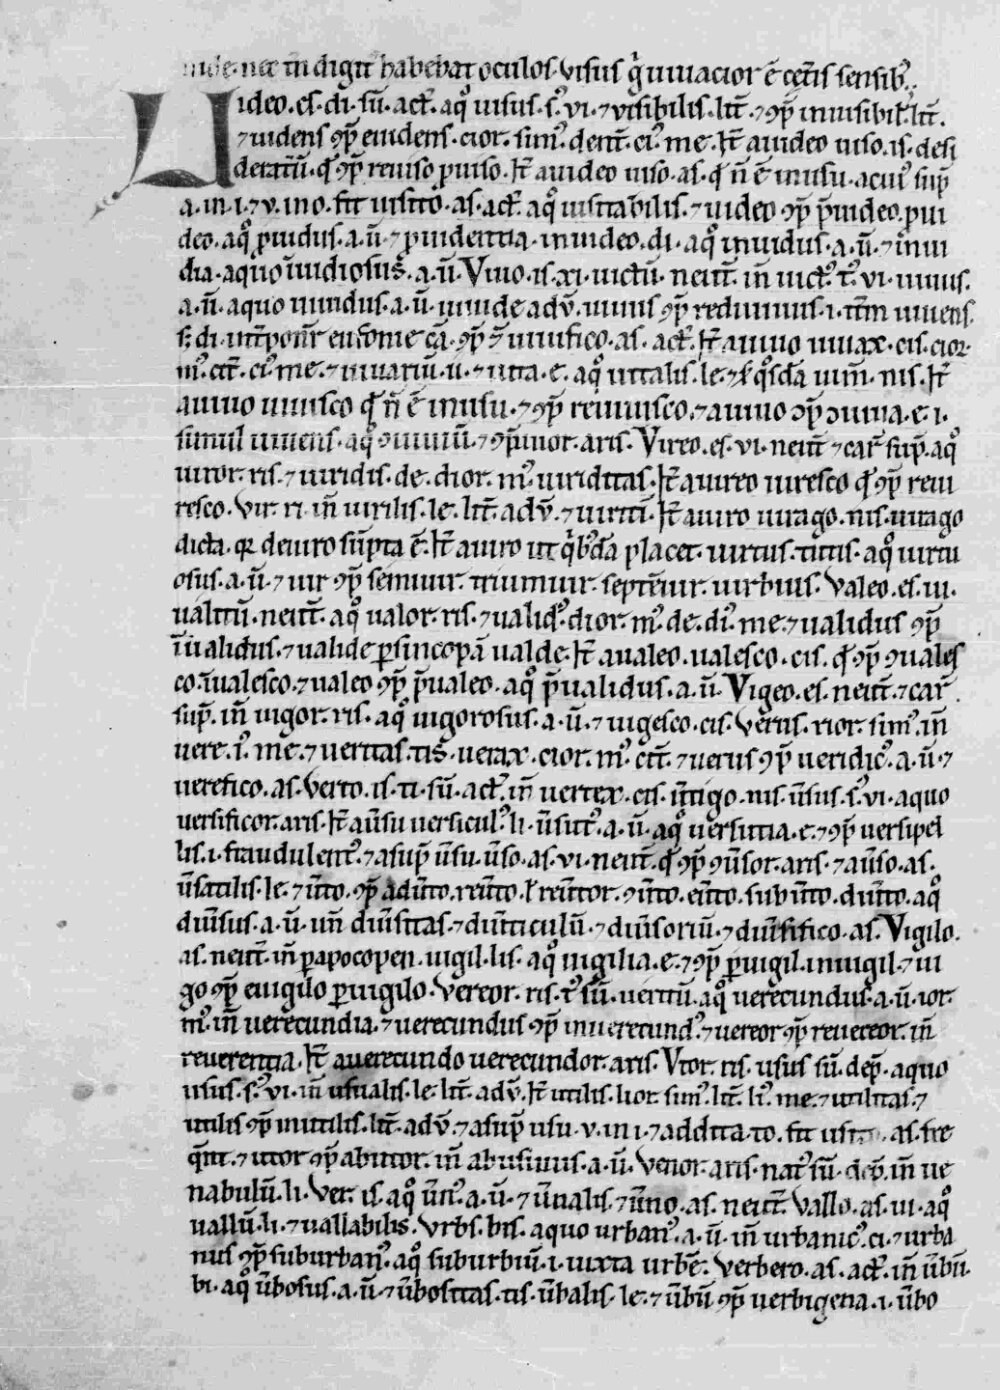 inde. nec in digit᷑ habebat oculos. visus q̃ uiuacior ē cet̃is sensib᷒.
Uideo. es. di. sū. act᷑. aq̊ uisus. s᷒. vi. ⁊ visibilis. lit̃. ⁊ ꝯp̃ inuisibil᷒. lit̃.
⁊ uidens ꝯp̃ euidens. cior. sim᷒. dent̃. ci᷒. me. It̃ a uideo uiso. is. desi
deratiuū. qd̃ ꝯp̃ reuiso prouiso. It̃ a uideo uiso. as. qd̃ ñ ē in usu. a cui᷒ sup̃
a. in. i. ⁊ v. in o. fit uisito. as. act᷑. aq̊ uisitabilis. ⁊ uideo ꝯp̃ p̃uideo. ꝓui
deo. aq̊ ꝓuidus. a. ū. ⁊ ꝓuidentia. inuideo. di. aq̊ inuidus. a. ū. ⁊ inui
dia. a quo īuidiosus. a. ū. Viuo. is. xi. uictū. neut̃. iñ uict᷒. t᷒. vi. uiuus.
a. ū. a quo uiuidus. a. ū. uiuide adv̄. uiuus ꝯp̃ rediuiuus. i. it̃m uiuens.
⁊ uiuifico. as. act᷑. It̃ a uiuo uiuax. cis. cior.
m᷒. cit̃. ci᷒. me. ⁊ uiuariū. ii. ⁊ uita. e. aq̊ uitalis. le. ⁊ q̊sdā uim̃. nis. It̃
a uiuo uiuisco qd̃ ñ ē in usu. ⁊ ꝯp̃ reuiuisco. ⁊ a uiuo ꝯp̃ ꝯuiua. e. i.
simul uiuens. aq̊ ꝯuiuiū. ⁊ ꝯp̃ uiuor. aris. Vireo. es. vi. neut̃ ⁊ car̃ sup̃. aq̊
uiror. ris. ⁊ uiridis. de. dior. m᷒. uiriditas. It̃ a uireo uiresco qd̃ ꝯp̃ reui
resco. Vir. ri. iñ uirilis. le. lit̃. adv̄. ⁊ uiriti. It̃ a uiro uirago. nis. uirago
dicta. qr de uiro sūpta ē. It̃ a uiro ut q̃b᷒dā placet. uirtus. tutis. aq̊ uirtu
osus. a. ū. ⁊ uir ꝯp̃ semiuir. triumuir. septēuir. uirbius. Valeo. es. ui.
ualitū. neut̃. aq̊ ualor. ris. ⁊ ualid᷒. dior. m᷒. de. di᷒. me. ⁊ ualidus ꝯp̃
īualidus. ⁊ ualide ꝑ sincopā ualde. It̃ a ualeo. ualesco. cis. qd̃ ꝯp̃ ꝯuales
co. īualesco. ⁊ ualeo ꝯp̃ p̃ualeo. aq̊ p̃ualidus. a. ū. Vigeo. es. neut̃. ⁊ car̃
sup̃. iñ uigor. ris. aq̊ uigorosus. a. ū. ⁊ uigesco. cis. Verus. rior. sim᷒. iñ
uere. i᷒. me. ⁊ ueritas. tis. uerax. cior. m᷒. cit̃. ⁊ uerus ꝯp̃ ueridic᷒. a. ū. ⁊
uerefico. as. Verto. is. ti. sū. act᷑. iñ uertex. cis. ũtigo. nis. ũsus. s᷒. vi. a quo
uersificor. aris. It̃ a ũsu uersicul᷒. li. ũsut᷒. a. ū. aq̊ uersutia. e. ⁊ ꝯp̃ uersipel
lis. i. fraudulent᷒. ⁊ a sup̃ ũsu. ũso. as. vi. neut̃. qd̃ ꝯp̃ ꝯũsor. aris. ⁊ a ũso. as.
ũsatilis. le. ⁊ ũto. ꝯp̃ adũto. reũto. ł reũtor. ꝯũto. eũto. subũto. diũto. aq̊
diũsus. a. ū. uñ diũsitas. ⁊ diũticulū. ⁊ diũsoriū. ⁊ diũsifico. as. Vigilo.
as. neut̃. iñ ꝑ apocopen. uigil. lis. aq̊ uigilia. e. ⁊ ꝯp̃ ꝑuigil. inuigil. ⁊ ui
go ꝯp̃ euigilo ꝑuigilo. Vereor. ris. t᷒ sū. ueritū. aq̊ uerecundus. a. ū. ior.
m᷒. iñ uerecundia. ⁊ uerecundus ꝯp̃ inuerecund᷒. ⁊ uereor ꝯp̃ reuereor. iñ
reuerentia. It̃ a uerecundo uerecundor. aris. Vtor. ris. usus sū. dep̃. a quo
usus. s᷒. vi. iñ usualis. le. lit̃. adv̄. It̃ utilis. lior. sim᷒. lit̃. li᷒. me. ⁊ utilitas. ⁊
utilis ꝯp̃ inutilis. lit̃. adv̄. ⁊ a sup̃ usu. v. in i. ⁊ addita. to. fit usito. as. fre
q̃nt. ⁊ utor ꝯp̃ abutor. iñ abusiuus. a. ū. Venor. aris. nat᷒ sū. dep̃. iñ ue
nabulū. li. Ver. is. aq̊ ũn᷒. a. ū. ⁊ ũnalis. ⁊ ũno. as. neut̃. Vallo. as. ui. aq̊
uallū. li. ⁊ uallabilis. Vrbs. bis. a quo urban᷒. a. ū. iñ urbanic᷒. ci. ⁊ urba
nus ꝯp̃ suburban᷒. aq̊ suburbiū. i. iuxta urbē. Verbero. as. act᷑. iñ ũbū.
bi. aq̊ ũbosus. a. ū. ⁊ ũbositas. tis. ũbalis. le. ⁊ ũbū ꝯp̃ uerbigena. i. ũbo